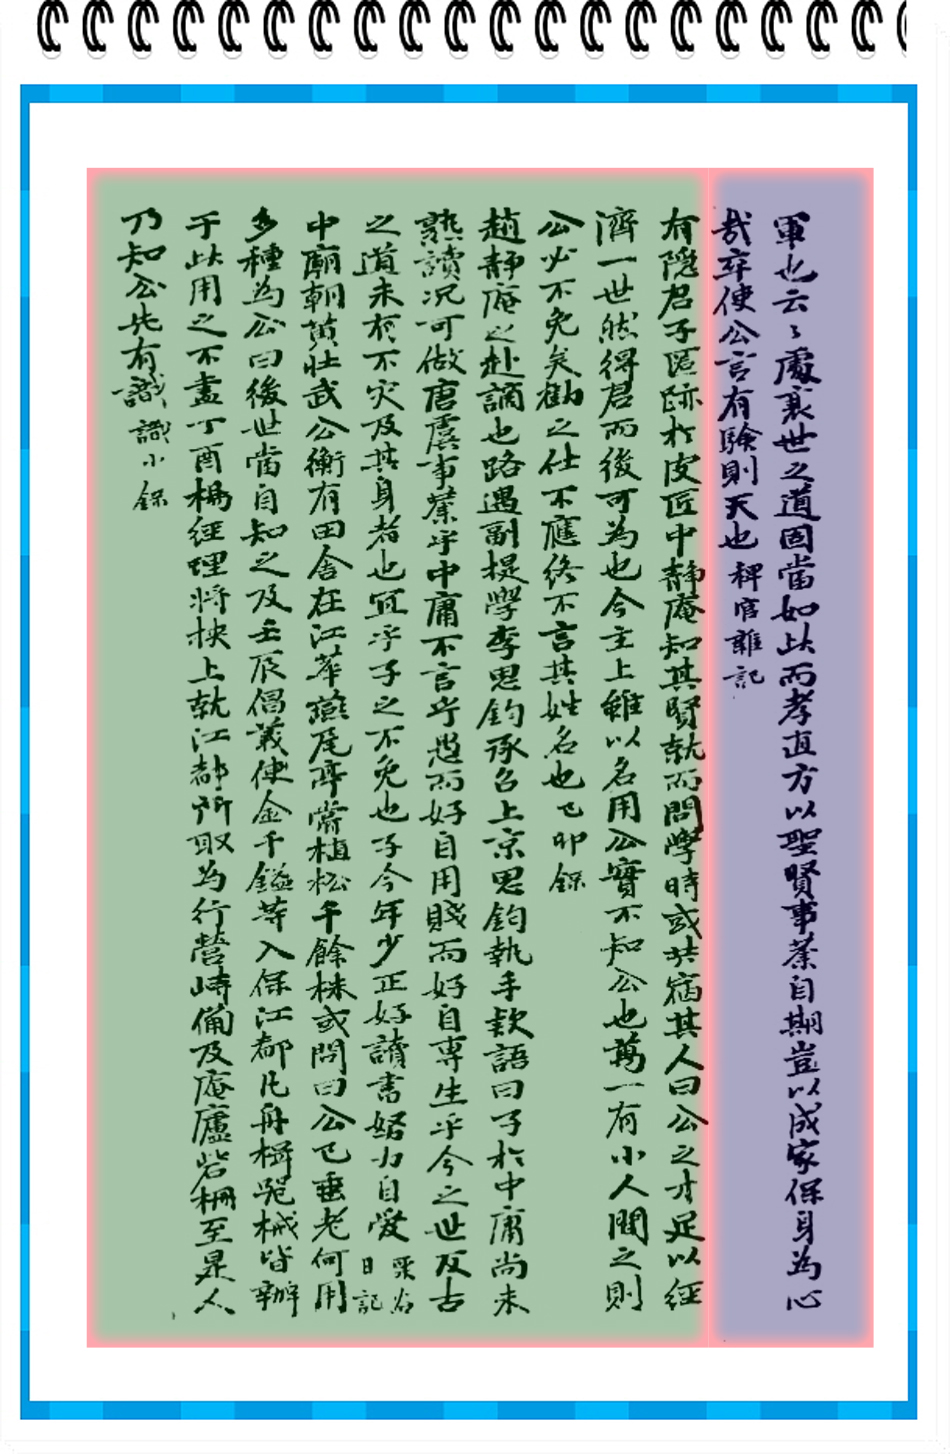 軍也云々處衰世之道固當如此而孝直方以聖賢事業自期豈以成家保身為心
哉弃使公言有驗則天也 稗官雜記
有隱君子匿跡於皮匠中靜庵知其賢就而問學時或共宿其人曰公之才足以經
濟一世然得君而後可為也今主上雖以名用公實不知公也萬一有小人間之則
公必不免矣勸之仕不應終不言其姓名也 己卯錄
趙靜庵之赴謫也路遇副提學李思鈞承召上京思鈞執手款語曰子於中庸尚未
熟讀况可做唐虞事業乎中庸不言乎愚而好自用賤而好自專生乎今之世反古
之道未有不灾及其身者也宜乎子之不免也子今年少正好讀書努力自愛 栗谷日記
中廟朝黃壯武公衡有田舍在江華燕尾亭嘗植松千餘株或問曰公已垂老何用
多種為公曰後世當自知之及壬辰倡義使金千鎰等入保江都凡舟楫器械皆辦
于此用之不盡丁酉楊經理將挾上就江都所取為行營峙備及庵廬砦柵至是人
乃知公先有識 識小錄